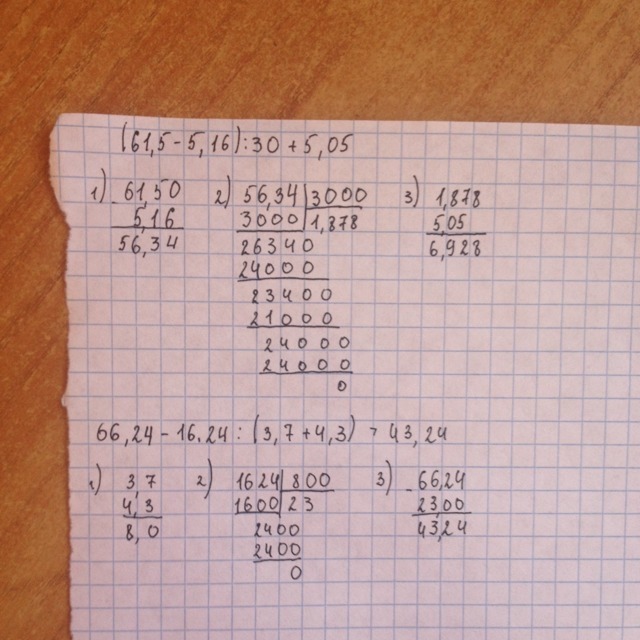 (61,5-5,16):30+5,05
1) 61,50 2) 56,34 3000 3) 1,878
- 5,16 3000 1,878 5,05
56,34 26340 6,928
24000
23400
21000
24000
24000
0
66,24-16.24:(3,7+4,3) = 43,24
1) 3,7 2) 1624 800 3) -66,24
4,3 1600 23 2300
8,0 2400 43,24
2400
0